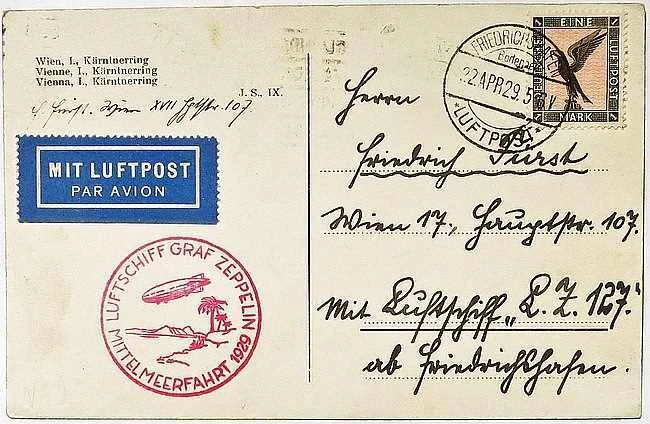 Wien, I., Kärntnerring
Vienne, I., Kärntnerring
Vienna, I., Kärntnerring
J. S., IX.
Fürst. Wien XVII Hptstr. 107
MIT LUFTPOST
PAR AVION
LUFTSCHIFF GRAF ZEPPELIN
MITTELMEERFAHRT 1929
FRIEDRICHSHAFEN
Bodensee
22.APR.29.5-6V.
*LUFTPOST*
EINE
LUFTPOST
MARK
1
1
Herrn
Friedrich Fürst
Wien 17., Hauptstr. 107.
Mit Luftschiff „L.Z. 127."
ab Friedrichshafen.